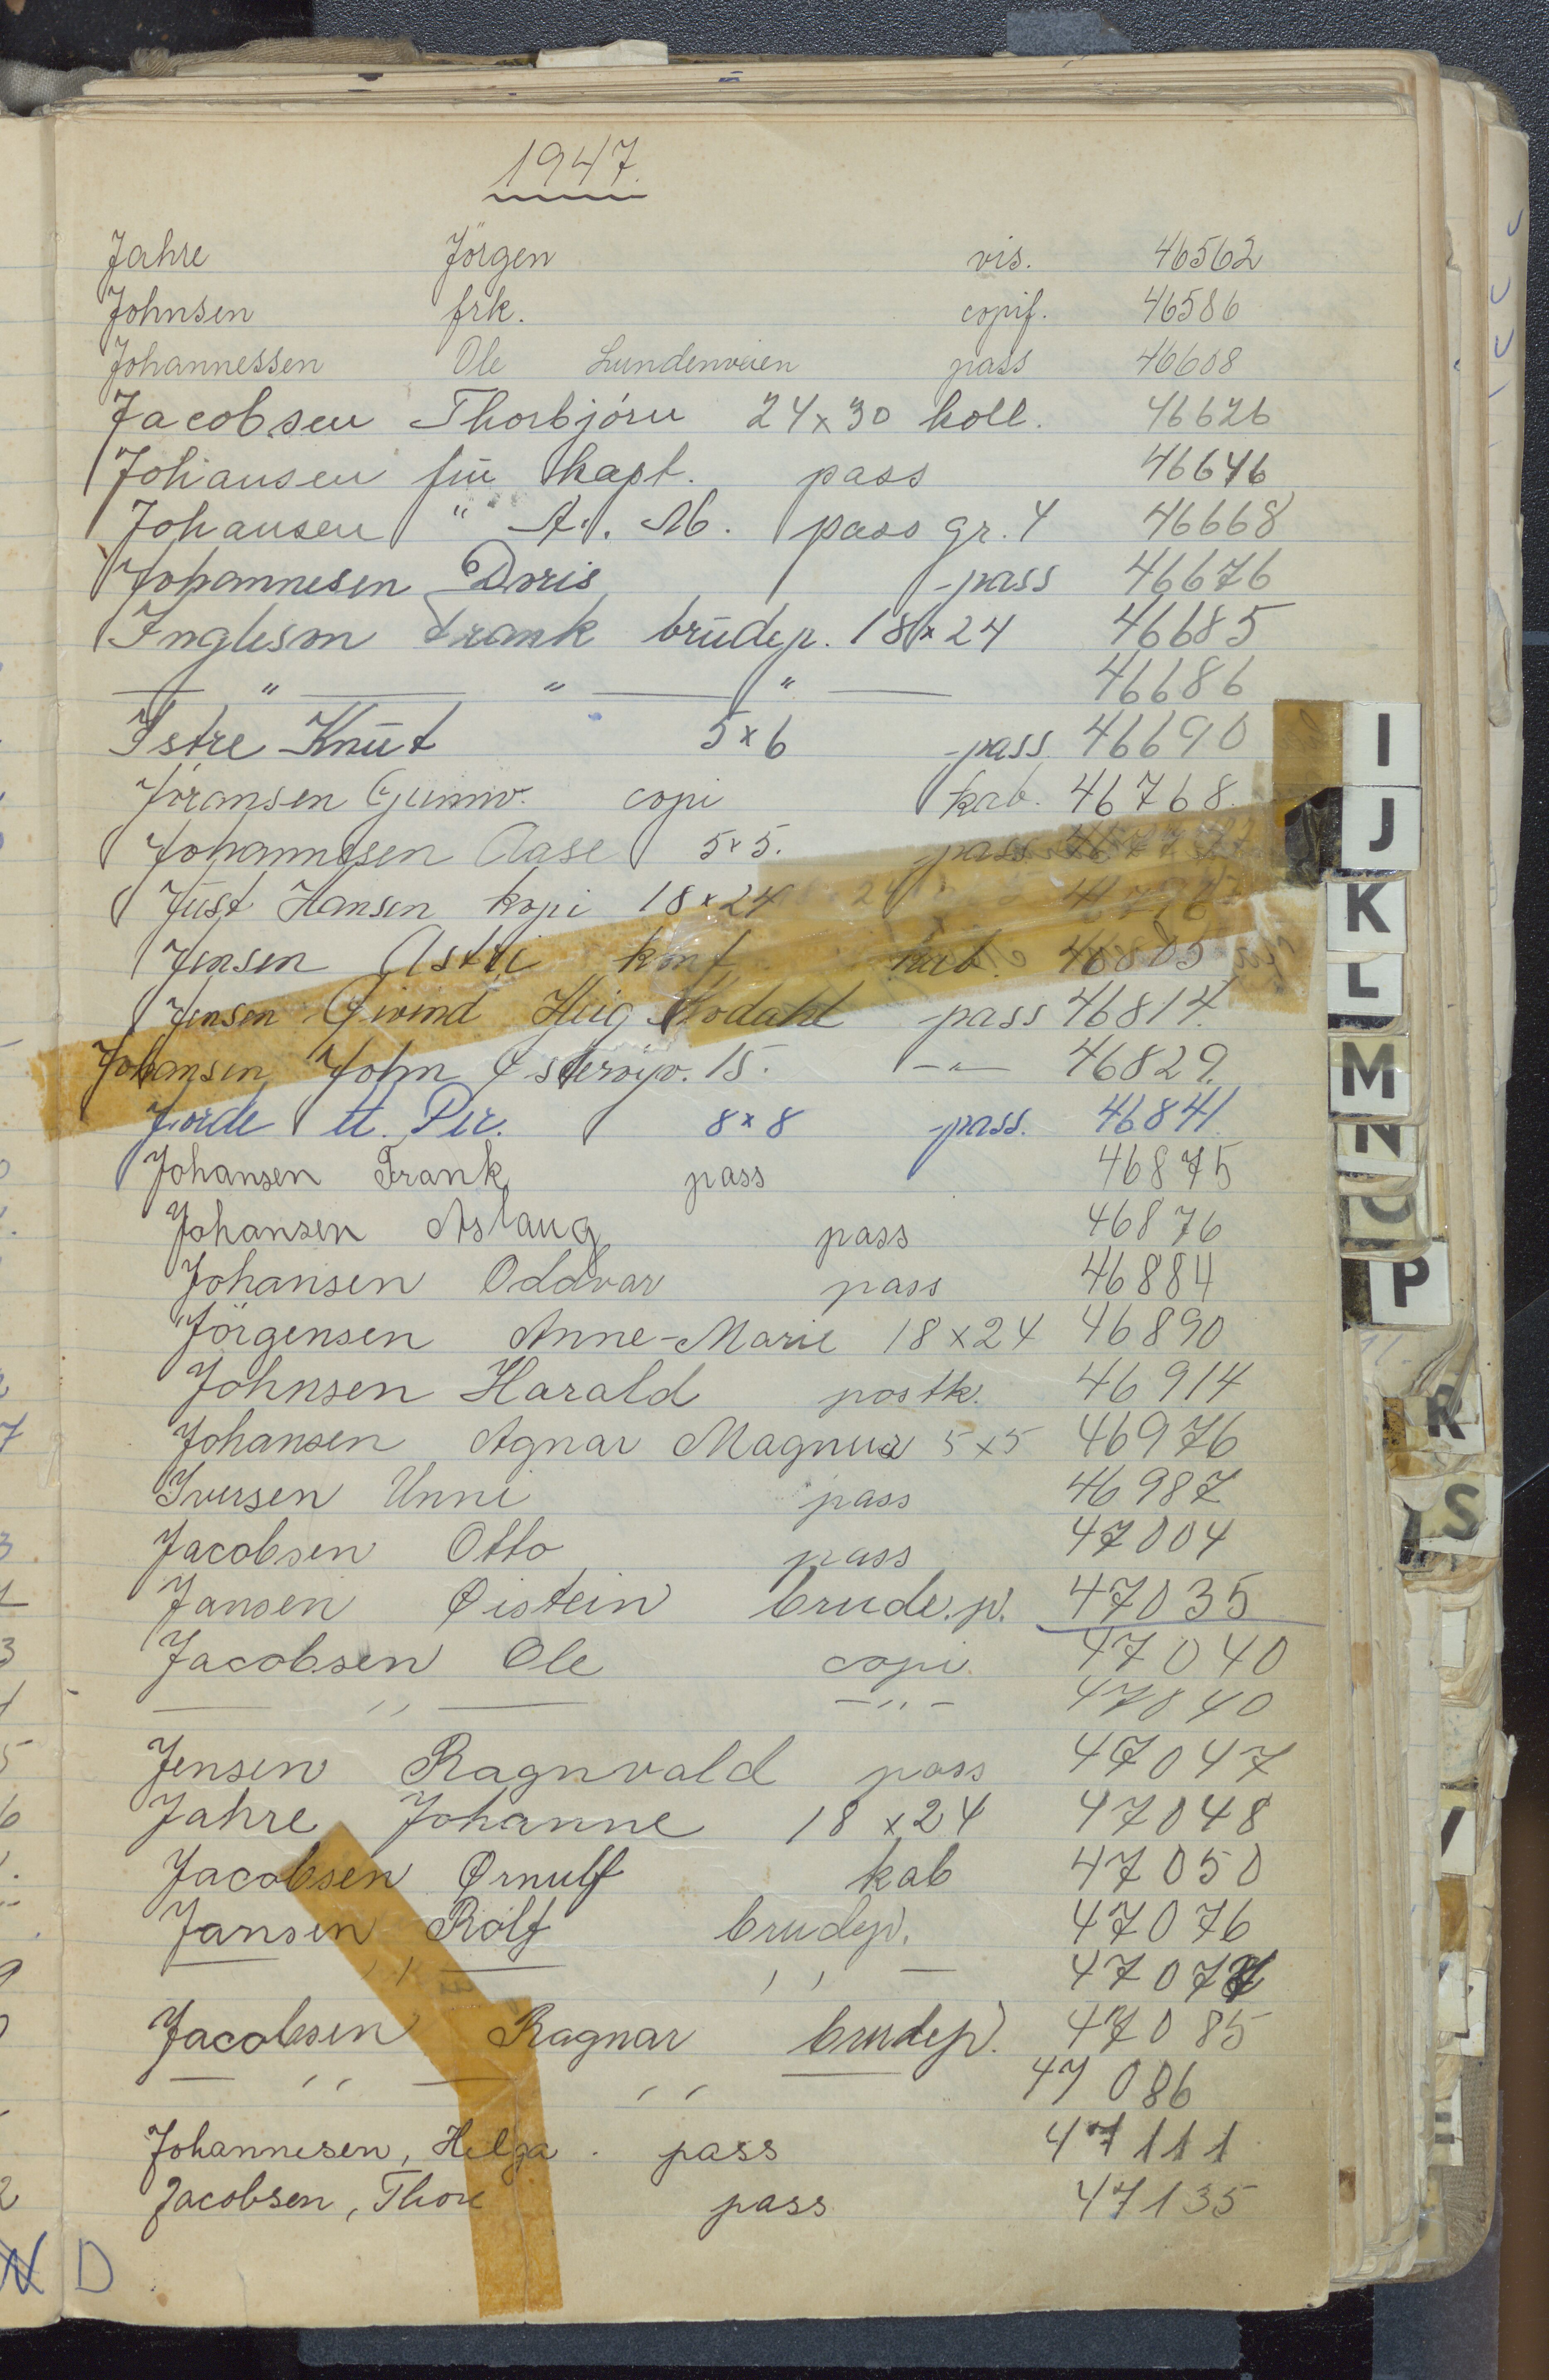 1947.
Jahre Jörgen vis. 46562
Johnsen frk. copif. 46586
Johannessen Ole Lundenveien pass 46608
Jacobsen Thorbjórn 24x30 koll. 46626
Johansen frū kapt. pass 46646
Johansen " A. M. pass gr. 4 46668
Johannesen Doris pass 46676
Ingleson Frank brūdep. 18x24 46685
— " — " — " — 46686
Istre Knūt 5x6 pass 46690
Jöransen Gunnv. copi kab. 46768.
Johannesen Aase 5x5. pass
Jūst Hansen kopi 18x24
Jensen Astri konf kab. 46805
Jensen Eivind Hūig Modahl pass 46814.
Johansen John Østeröyv. 15. —"— 46829.
Jorde lt. Per. 8x8 pass. 46841.
Johansen Frank pass 46875
Johansen Aslaug pass 46876
Johansen Oddvar pass 46884
Jörgensen Anne-Marie 18x24 46890
Johnsen Harald postk. 46914
Johansen Agnar Magnus 5x5 46976
Iversen Unni pass 46987
Jacobsen Otto pass 47004
Jansen Øistein brude.p. 47035
Jacobsen Ole copi 47040
— " — — " — 47040
Jensen Ragnvald pass 47047
Jahre Johanne 18x24 47048
Jacobsen Ørnulf kab 47050
Jansen Rolf brudep. 47076
— " — " — 47077
Jacobsen Ragnar brudep. 47085
— " — " — 47086
Johannesen, Helga. pass 47111
Jacobsen, Thore pass 47135
D
I
J
K
L
M
N
O
P
R
S